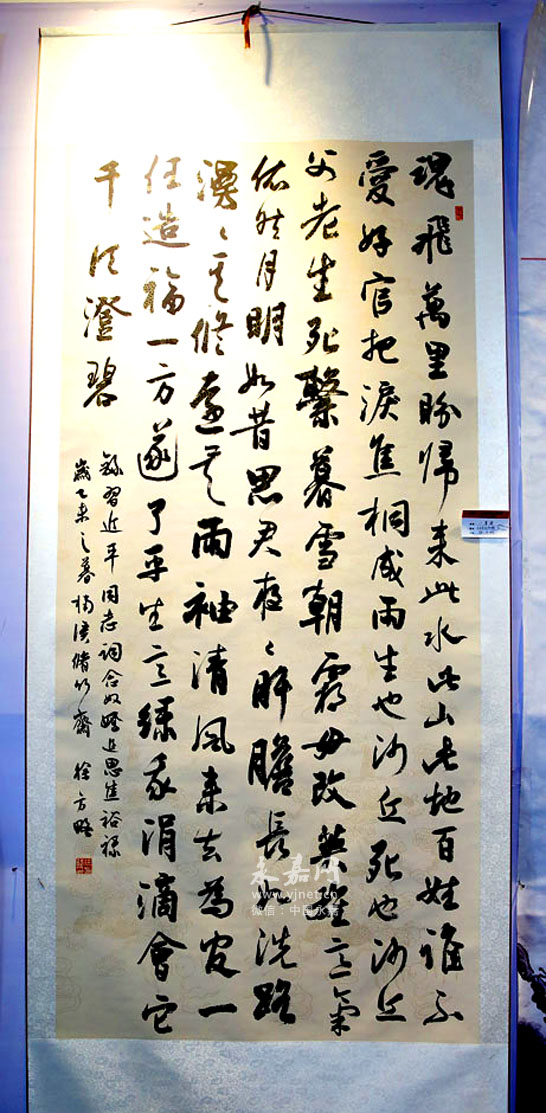 魂飛萬里盼歸來此水此山此地百姓誰不
愛好官把淚焦桐成雨生也沙丘死也沙丘
父老生死繫暮雪朝霜毋改英雄意氣
依然月明如昔思君夜〻肝膽長如洗路
漫〻其修遠矣兩袖清風來去為官一
任造福一方遂了平生意綠我涓滴會它
千頃澄碧
錄習近平同志詞念奴嬌追思焦裕祿
歲乙未之暮楠溪脩竹齋 徐方
永嘉网
www.yjnet.cn
微信:中国永嘉